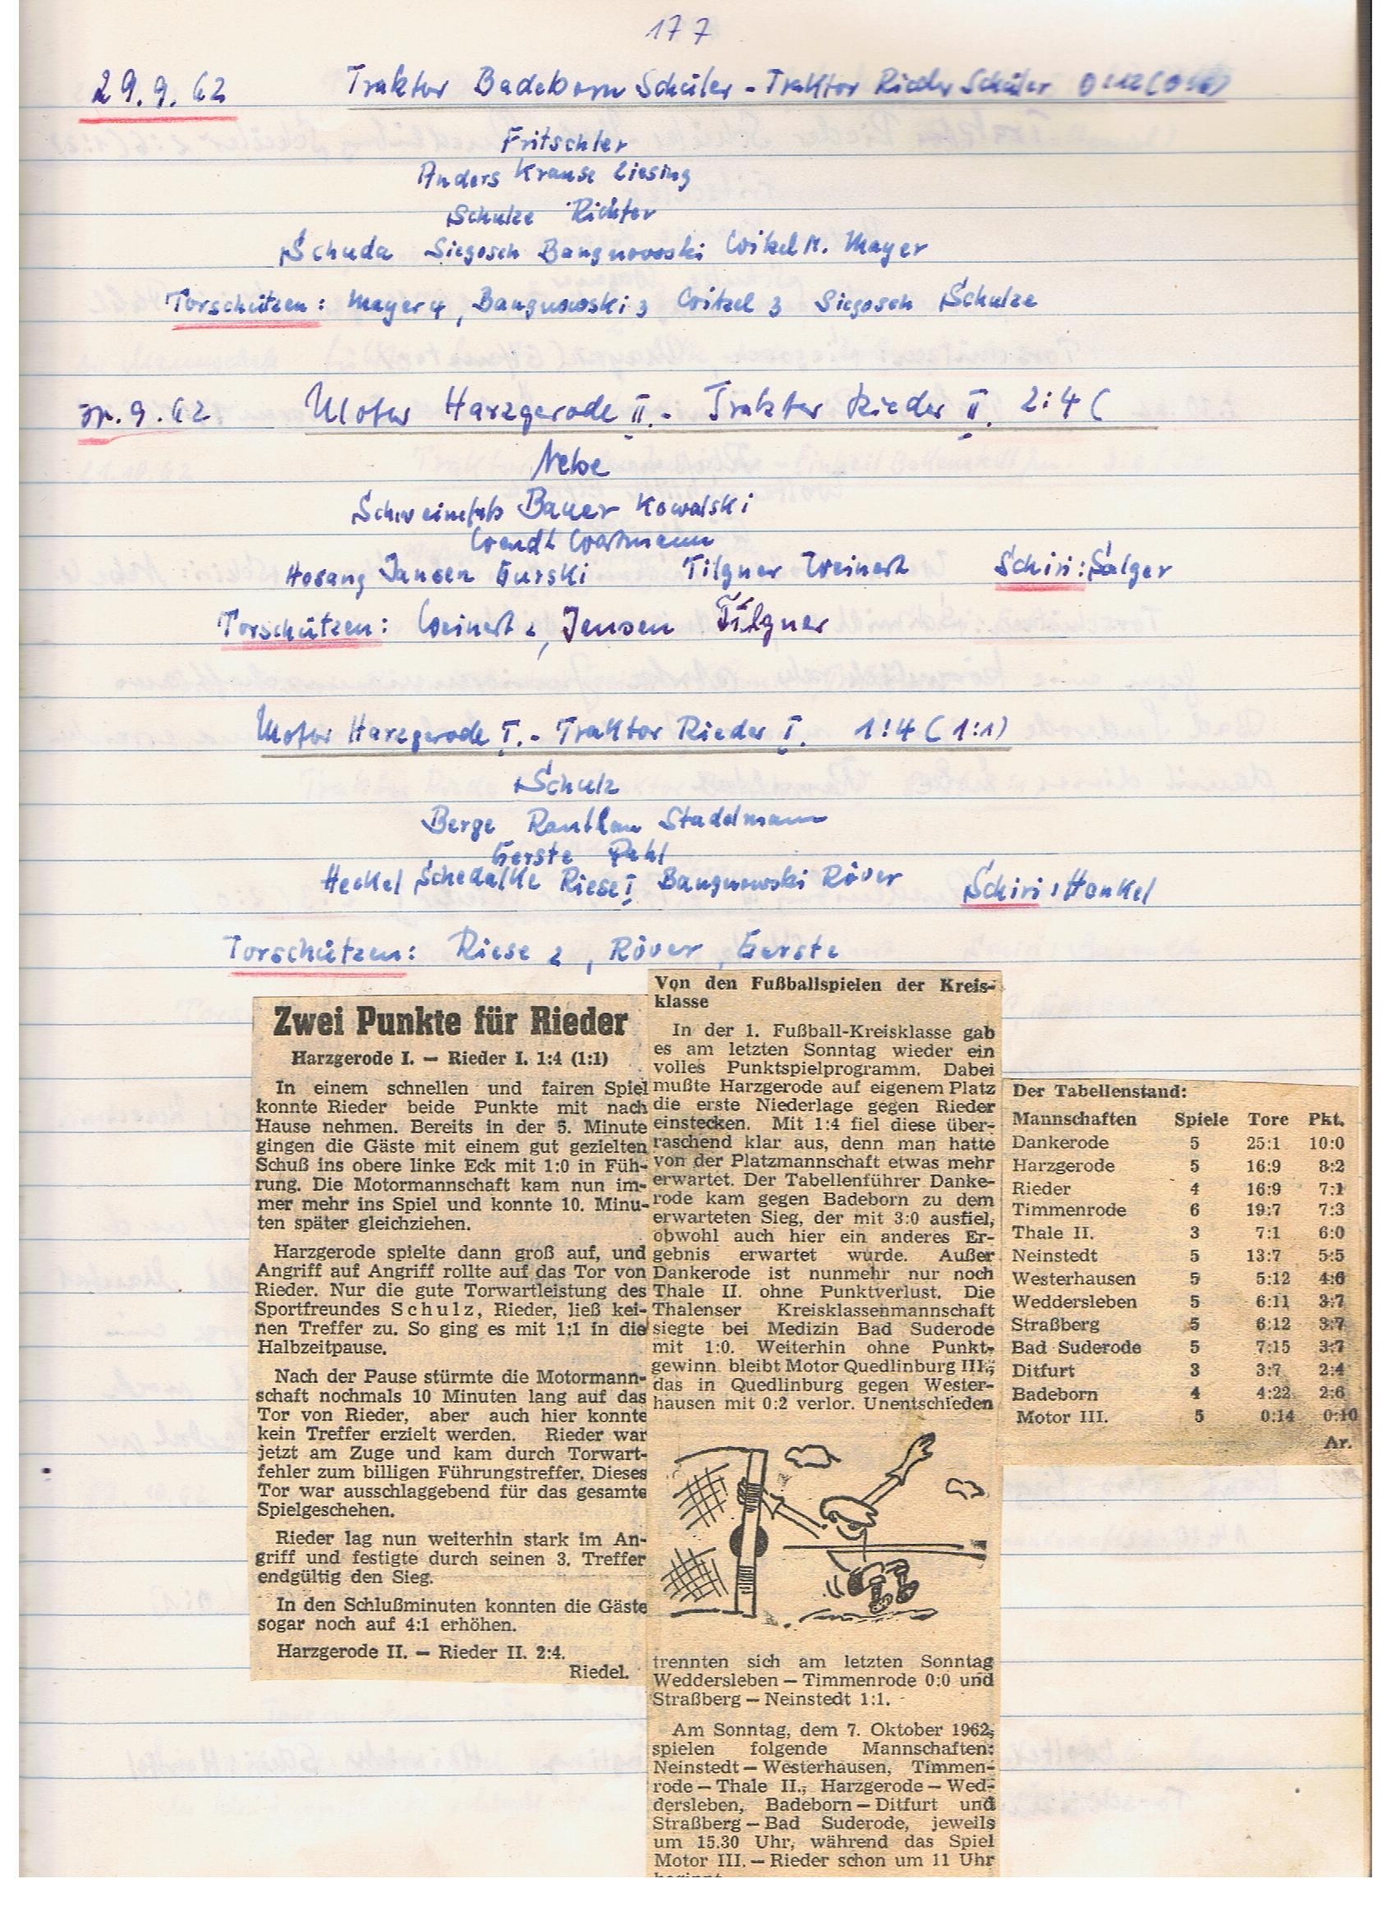 177
29.9.62 Traktor Badeborn Schüler - Traktor Rieder Schüler 0:12 (
Fritschler
Anders Krause Liesing
Schulze Richter
Schuda Siegosch Bangnowski Witzel M. Mayer
Torschützen: Mayer 4, Bangnowski 3 Witzel 3 Siegosch Schulze
30.9.62 Motor Harzgerode II. - Traktor Rieder II. 2:4 (
Nebe
Bauer Kowalski
Wendt Wartmann
Hosang Jansen Gurski Tilgner Weinert Schiri: Salger
Torschützen: Weinert 2, Jensen Tilgner
Motor Harzgerode I. - Traktor Rieder I. 1:4 (1:1)
Schulz
Berge Stadelmann
Gerste Pahl
Heckel Schedalke Riese I Bangnowski Röver Schiri: Henkel
Torschützen: Riese 2, Röver, Gerste
Zwei Punkte für Rieder
Harzgerode I. — Rieder I. 1:4 (1:1)
In einem schnellen und fairen Spiel
konnte Rieder beide Punkte mit nach
Hause nehmen. Bereits in der 5. Minute
gingen die Gäste mit einem gut gezielten
Schuß ins obere linke Eck mit 1:0 in Füh-
rung. Die Motormannschaft kam nun im-
mer mehr ins Spiel und konnte 10. Minu-
ten später gleichziehen.
Harzgerode spielte dann groß auf, und
Angriff auf Angriff rollte auf das Tor von
Rieder. Nur die gute Torwartleistung des
Sportfreundes Schulz, Rieder, ließ kei-
nen Treffer zu. So ging es mit 1:1 in die
Halbzeitpause.
Nach der Pause stürmte die Motormann-
schaft nochmals 10 Minuten lang auf das
Tor von Rieder, aber auch hier konnte
kein Treffer erzielt werden. Rieder war
jetzt am Zuge und kam durch Torwart-
fehler zum billigen Führungstreffer. Dieses
Tor war ausschlaggebend für das gesamte
Spielgeschehen.
Rieder lag nun weiterhin stark im An-
griff und festigte durch seinen 3. Treffer
endgültig den Sieg.
In den Schlußminuten konnten die Gäste
sogar noch auf 4:1 erhöhen.
Harzgerode II. — Rieder II. 2:4.
Riedel.
Von den Fußballspielen der Kreis-
klasse
In der 1. Fußball-Kreisklasse gab
es am letzten Sonntag wieder ein
volles Punktspielprogramm. Dabei
mußte Harzgerode auf eigenem Platz
die erste Niederlage gegen Rieder
einstecken. Mit 1:4 fiel diese über-
raschend klar aus, denn man hatte
von der Platzmannschaft etwas mehr
erwartet. Der Tabellenführer Danke-
rode kam gegen Badeborn zu dem
erwarteten Sieg, der mit 3:0 ausfiel,
obwohl auch hier ein anderes Er-
gebnis erwartet wurde. Außer
Dankerode ist nunmehr nur noch
Thale II. ohne Punktverlust. Die
Thalenser Kreisklassenmannschaft
siegte bei Medizin Bad Suderode
mit 1:0. Weiterhin ohne Punkt-
gewinn bleibt Motor Quedlinburg III.,
das in Quedlinburg gegen Wester-
hausen mit 0:2 verlor. Unentschieden
trennten sich am letzten Sonntag
Weddersleben — Timmenrode 0:0 und
Straßberg — Neinstedt 1:1.
Am Sonntag, dem 7. Oktober 1962,
spielen folgende Mannschaften:
Neinstedt — Westerhausen, Timmen-
rode — Thale II., Harzgerode — Wed-
dersleben, Badeborn — Ditfurt und
Straßberg — Bad Suderode, jeweils
um 15.30 Uhr, während das Spiel
Motor III. — Rieder schon um 11 Uhr
Der Tabellenstand:
Mannschaften Spiele Tore Pkt.
Dankerode 5 25:1 10:0
Harzgerode 5 16:9 8:2
Rieder 4 16:9 7:1
Timmenrode 6 19:7 7:3
Thale II. 3 7:1 6:0
Neinstedt 5 13:7 5:5
Westerhausen 5 5:12 4:6
Weddersleben 5 6:11 3:7
Straßberg 5 6:12 3:7
Bad Suderode 5 7:15 3:7
Ditfurt 3 3:7 2:4
Badeborn 4 4:22 2:6
Motor III. 5 0:14 0:10
Ar.